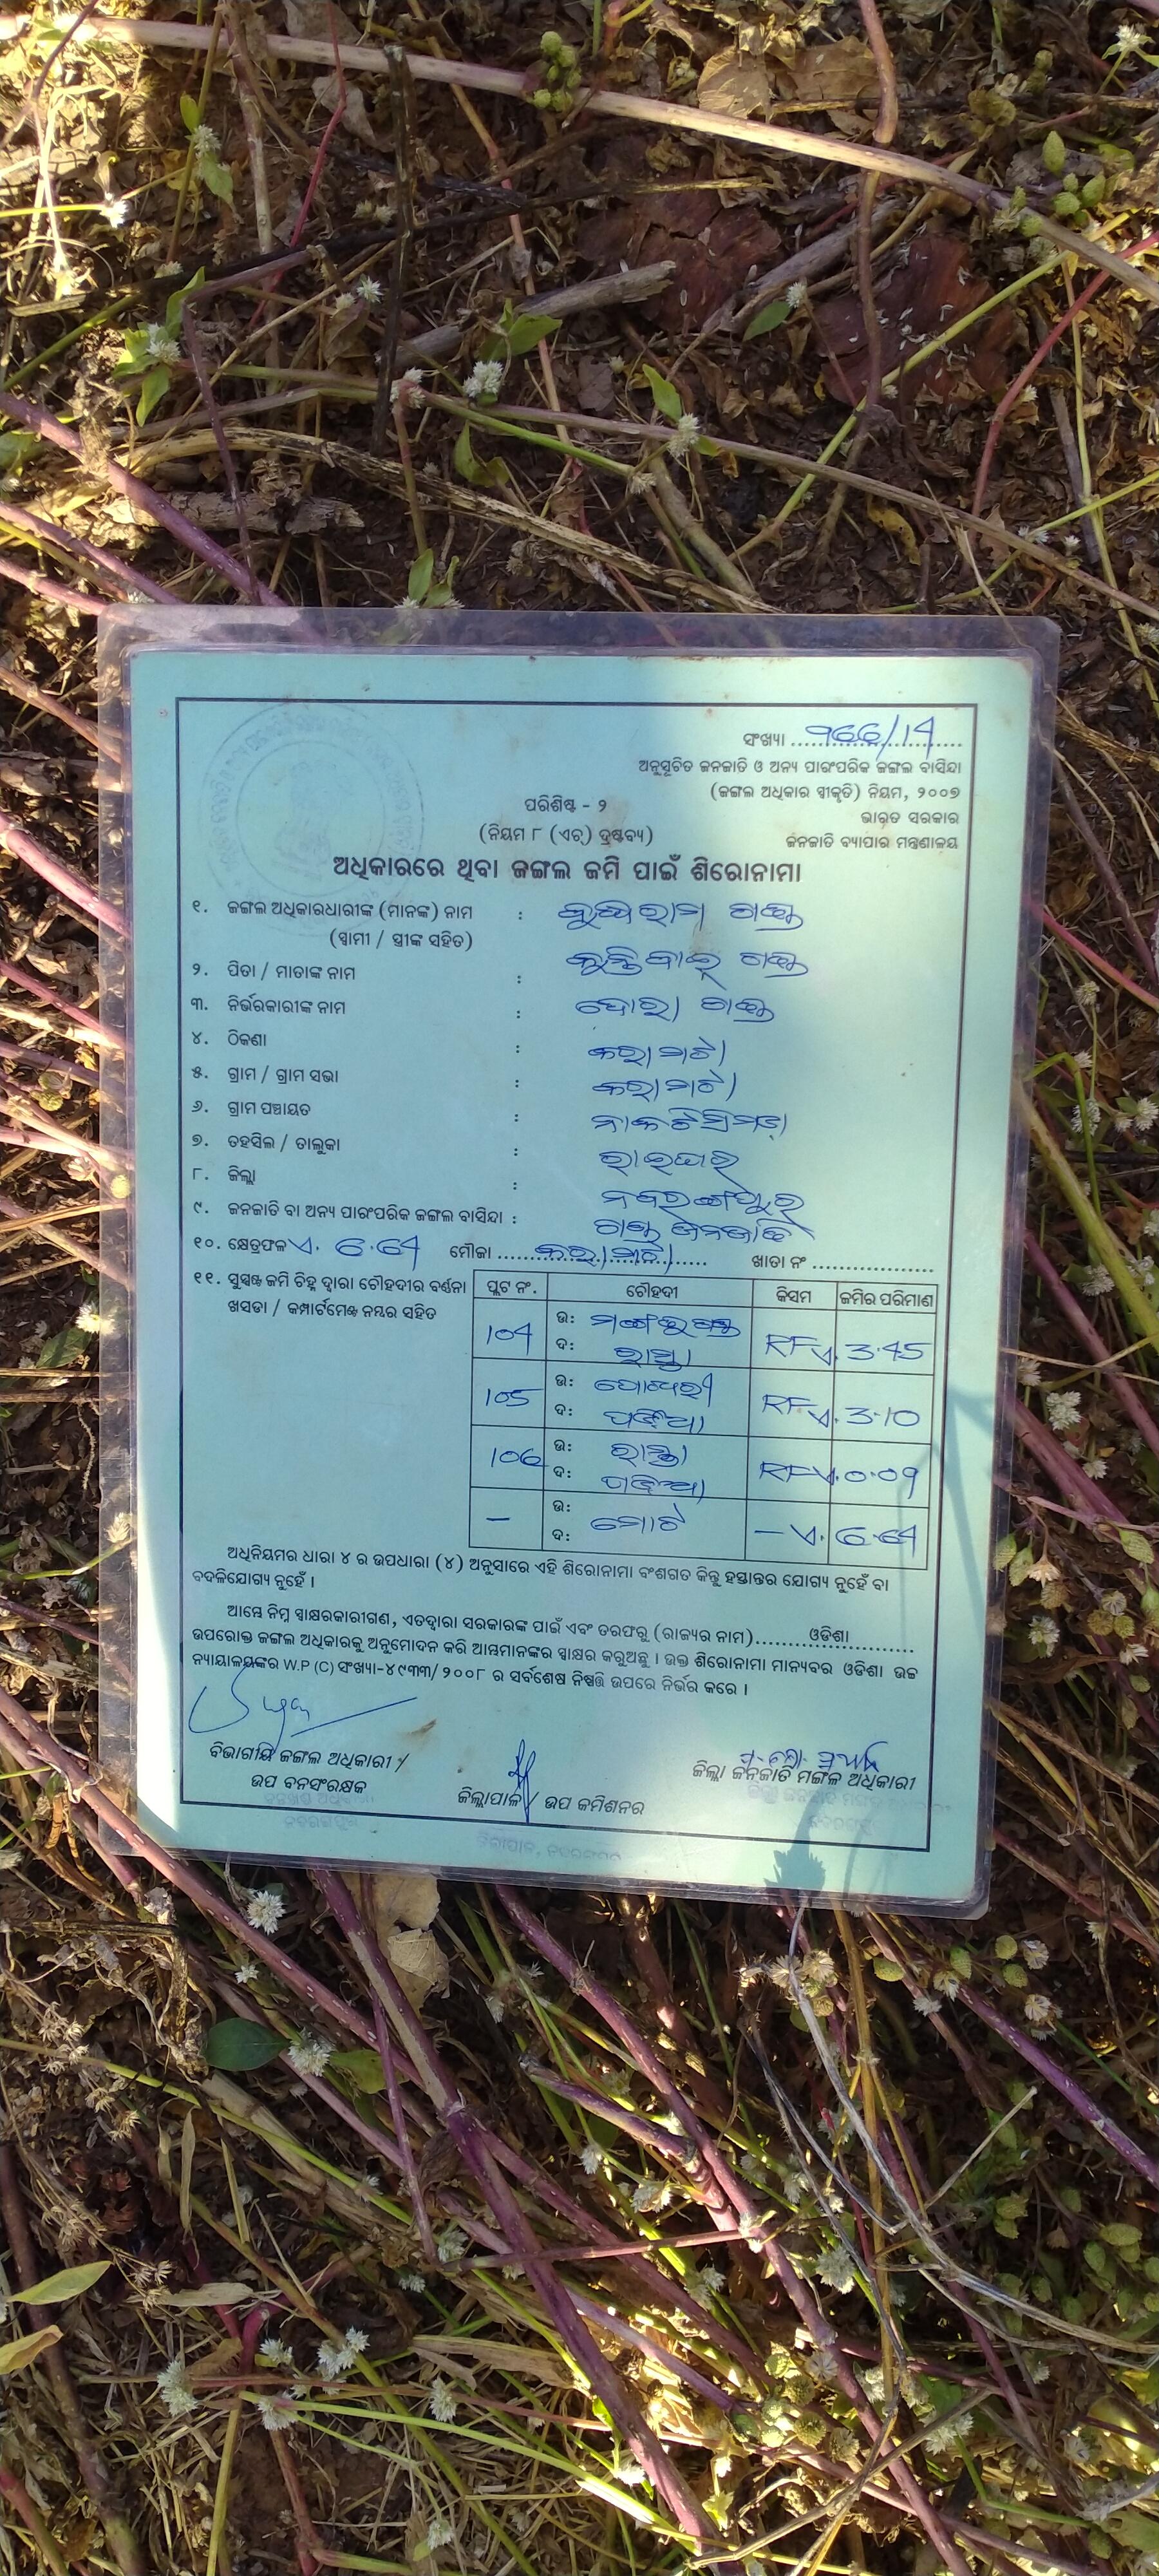 ସଂଖ୍ୟା ..................
ଅନୁସୂଚିତ ଜନଜାତି ଓ ଅନ୍ୟ ପାରଂପରିକ ଜଙ୍ଗଲ ବାସିନ୍ଦା
(ଜଙ୍ଗଲ ଅଧିକାର ସ୍ୱୀକୃତି) ନିୟମ, ୨୦୦୭
ଭାରତ ସରକାର
ଜନଜାତି ବ୍ୟାପାର ମନ୍ତ୍ରଣାଳୟ
ପରିଶିଷ୍ଟ - ୨
(ନିୟମ ୮ (ଏଚ୍) ଦ୍ରଷ୍ଟବ୍ୟ)
ଅଧିକାରରେ ଥିବା ଜଙ୍ଗଲ ଜମି ପାଇଁ ଶିରୋନାମା
୧. ଜଙ୍ଗଲ ଅଧିକାରଧାରୀଙ୍କ (ମାନଙ୍କ) ନାମ :
(ସ୍ୱାମୀ / ସ୍ତ୍ରୀଙ୍କ ସହିତ)
୨. ପିତା / ମାତାଙ୍କ ନାମ :
୩. ନିର୍ଭରକାରୀଙ୍କ ନାମ :
୪. ଠିକଣା :
୫. ଗ୍ରାମ / ଗ୍ରାମ ସଭା :
୬. ଗ୍ରାମ ପଞ୍ଚାୟତ :
୭. ତହସିଲ / ତାଲୁକା : ରାଇଘର
୮. ଜିଲ୍ଲା : ନବରଙ୍ଗପୁର
୯. ଜନଜାତି ବା ଅନ୍ୟ ପାରଂପରିକ ଜଙ୍ଗଲ ବାସିନ୍ଦା : ଗଣ୍ଡ ଜନଜାତି
୧୦. କ୍ଷେତ୍ରଫଳ ଏ. 6.64 ମୌଜା .................. ଖାତା ନଂ ..................
୧୧. ସୁସ୍ପଷ୍ଟ ଜମି ଚିହ୍ନ ଦ୍ୱାରା ଚୌହଦୀର ବର୍ଣ୍ଣନା
ଖସଡା / କମ୍ପାର୍ଟମେଣ୍ଟ ନମ୍ବର ସହିତ
ପ୍ଲଟ ନଂ. ଚୌହଦୀ କିସମ ଜମିର ପରିମାଣ
104 ଉ: RF ଏ. 3.45
ଦ: ରାସ୍ତା
105 ଉ: ପୋଖରୀ RF ଏ. 3.10
ଦ: ପଡ଼ିଆ
106 ଉ: ରାସ୍ତା RF ଏ. 0.09
ଦ: ପଡ଼ିଆ
– ଉ: ଦ: ମୋଟ – ଏ. 6.64
ଅଧିନିୟମର ଧାରା ୪ ର ଉପଧାରା (୪) ଅନୁସାରେ ଏହି ଶିରୋନାମା ବଂଶଗତ କିନ୍ତୁ ହସ୍ତାନ୍ତର ଯୋଗ୍ୟ ନୁହେଁ ବା
ବଦଳିଯୋଗ୍ୟ ନୁହେଁ ।
ଆମ୍ଭେ ନିମ୍ନ ସ୍ୱାକ୍ଷରକାରୀଗଣ, ଏତଦ୍ଦ୍ୱାରା ସରକାରଙ୍କ ପାଇଁ ଏବଂ ତରଫରୁ (ରାଜ୍ୟର ନାମ)........ଓଡିଶା........
ଉପରୋକ୍ତ ଜଙ୍ଗଲ ଅଧିକାରକୁ ଅନୁମୋଦନ କରି ଆମ୍ଭମାନଙ୍କର ସ୍ୱାକ୍ଷର କରୁଅଛୁ । ଉକ୍ତ ଶିରୋନାମା ମାନ୍ୟବର ଓଡିଶା ଉଚ୍ଚ
ନ୍ୟାୟାଳୟଙ୍କର W.P (C) ସଂଖ୍ୟା-୪୯୩୩/୨୦୦୮ ର ସର୍ବଶେଷ ନିଷ୍ପତ୍ତି ଉପରେ ନିର୍ଭର କରେ ।
ବିଭାଗୀୟ ଜଙ୍ଗଲ ଅଧିକାରୀ /
ଉପ ବନସଂରକ୍ଷକ
ଜିଲ୍ଲାପାଳ / ଉପ କମିଶନର
ଜିଲ୍ଲା ଜନଜାତି ମଙ୍ଗଳ ଅଧିକାରୀ